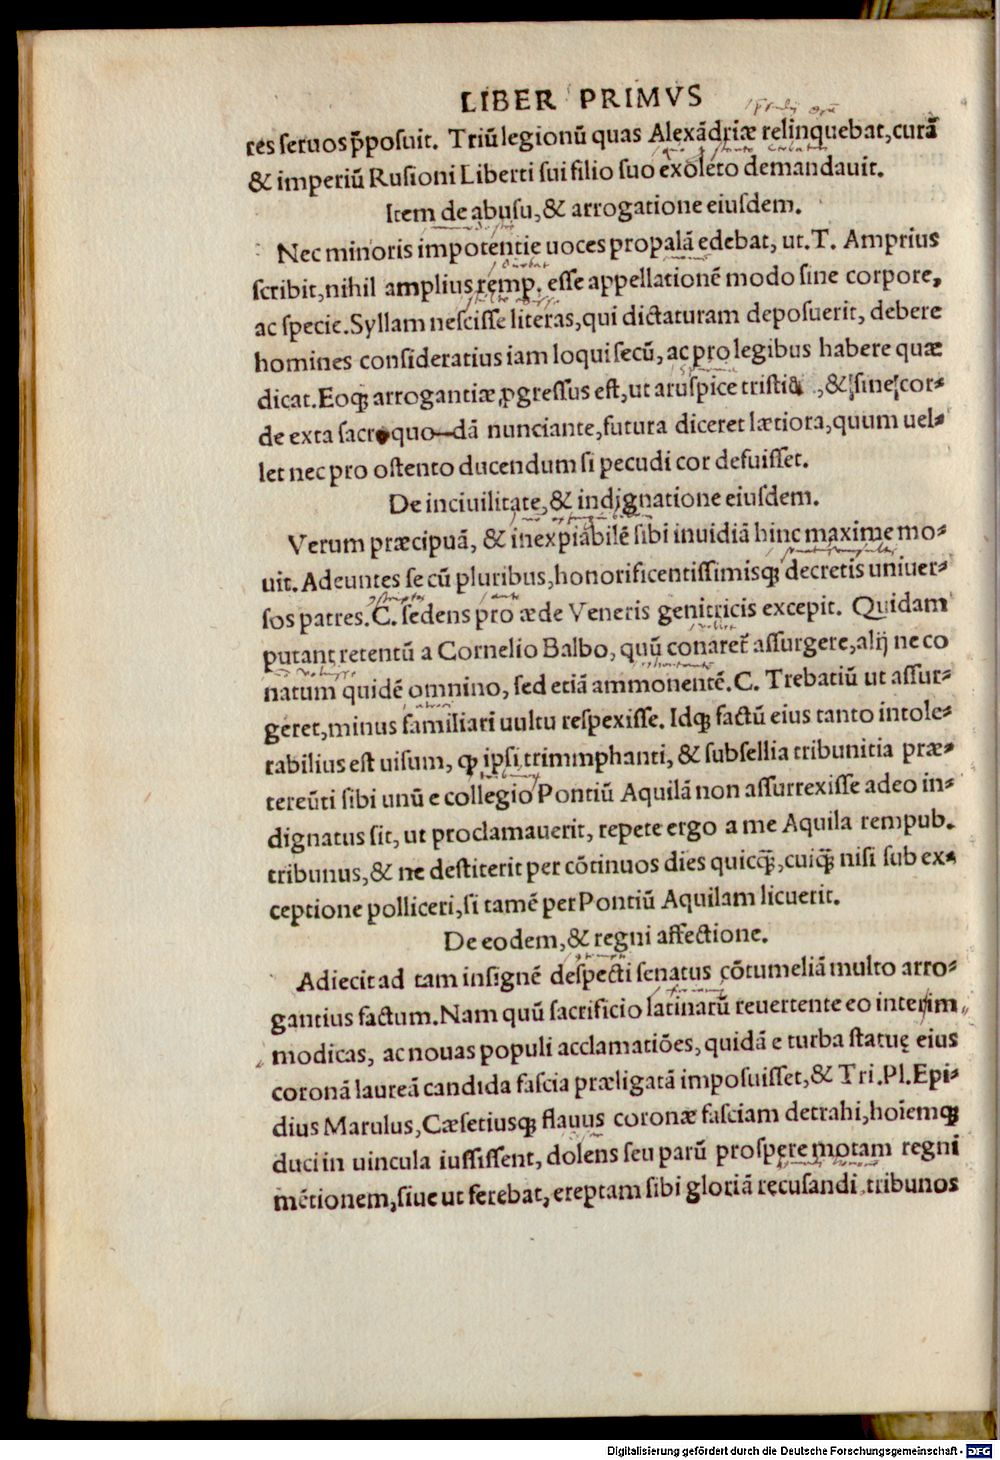 LIBER PRIMVS
res seruos p̄posuit. Triū legionū quas Alexādriæ relinquebat, curā
& imperiū Rusioni Liberti sui filio suo exoleto demandauit.
Item de abusu, & arrogatione eiusdem.
Nec minoris impotentie uoces propalā edebat, ut. T. Amprius
scribit, nihil amplius remp. esse appellationē modo sine corpore,
ac specie. Syllam nescisse literas, qui dictaturam deposuerit, debere
homines consideratius iam loqui secū, ac pro legibus habere quæ
dicat. Eoqꝫ arrogantiæ ꝓgressus est, ut aruspice tristia, & sine cor-
de exta sacro quodā nunciante, futura diceret lætiora, quum uel-
let nec pro ostento ducendum si pecudi cor defuisset.
De inciuilitate, & indignatione eiusdem.
Verum præcipuā, & inexpiabilē sibi inuidiā hinc maxime mo-
uit. Adeuntes se cū pluribus, honorificentissimisqꝫ decretis uniuer-
sos patres. C. sedens pro æde Veneris genitricis excepit. Quidam
putant retentū a Cornelio Balbo, quū conaret᷑ assurgere, alij ne co
natum quidē omnino, sed etiā ammonentē. C. Trebatiū ut assur-
geret, minus familiari uultu respexisse. Idqꝫ factū eius tanto intole-
rabilius est uisum, ꝙ ipsi trimmphanti, & subsellia tribunitia præ-
tereūti sibi unū e collegio Pontiū Aquilā non assurrexisse adeo in-
dignatus sit, ut proclamauerit, repete ergo a me Aquila rempub.
tribunus, & ne destiterit per cōtinuos dies quicq̄, cuiq̄ nisi sub ex-
ceptione polliceri, si tamē per Pontiū Aquilam licuerit.
De eodem, & regni affectione.
Adiecit ad tam insignē despecti senatus cōtumeliā multo arro-
gantius factum. Nam quū sacrificio latinarū reuertente eo inter im
modicas, ac nouas populi acclamatiōes, quidā e turba statuę eius
coronā laureā candida fascia præligatā imposuisset, & Tri. Pl. Epi-
dius Marulus, Cæsetiusqꝫ flauus coronæ fasciam detrahi, hoīemqꝫ
duci in uincula iussissent, dolens seu parū prospere motam regni
mētionem, siue ut ferebat, ereptam sibi gloriā recusandi, tribunos
Digitalisierung gefördert durch die Deutsche Forschungsgemeinschaft - DFG